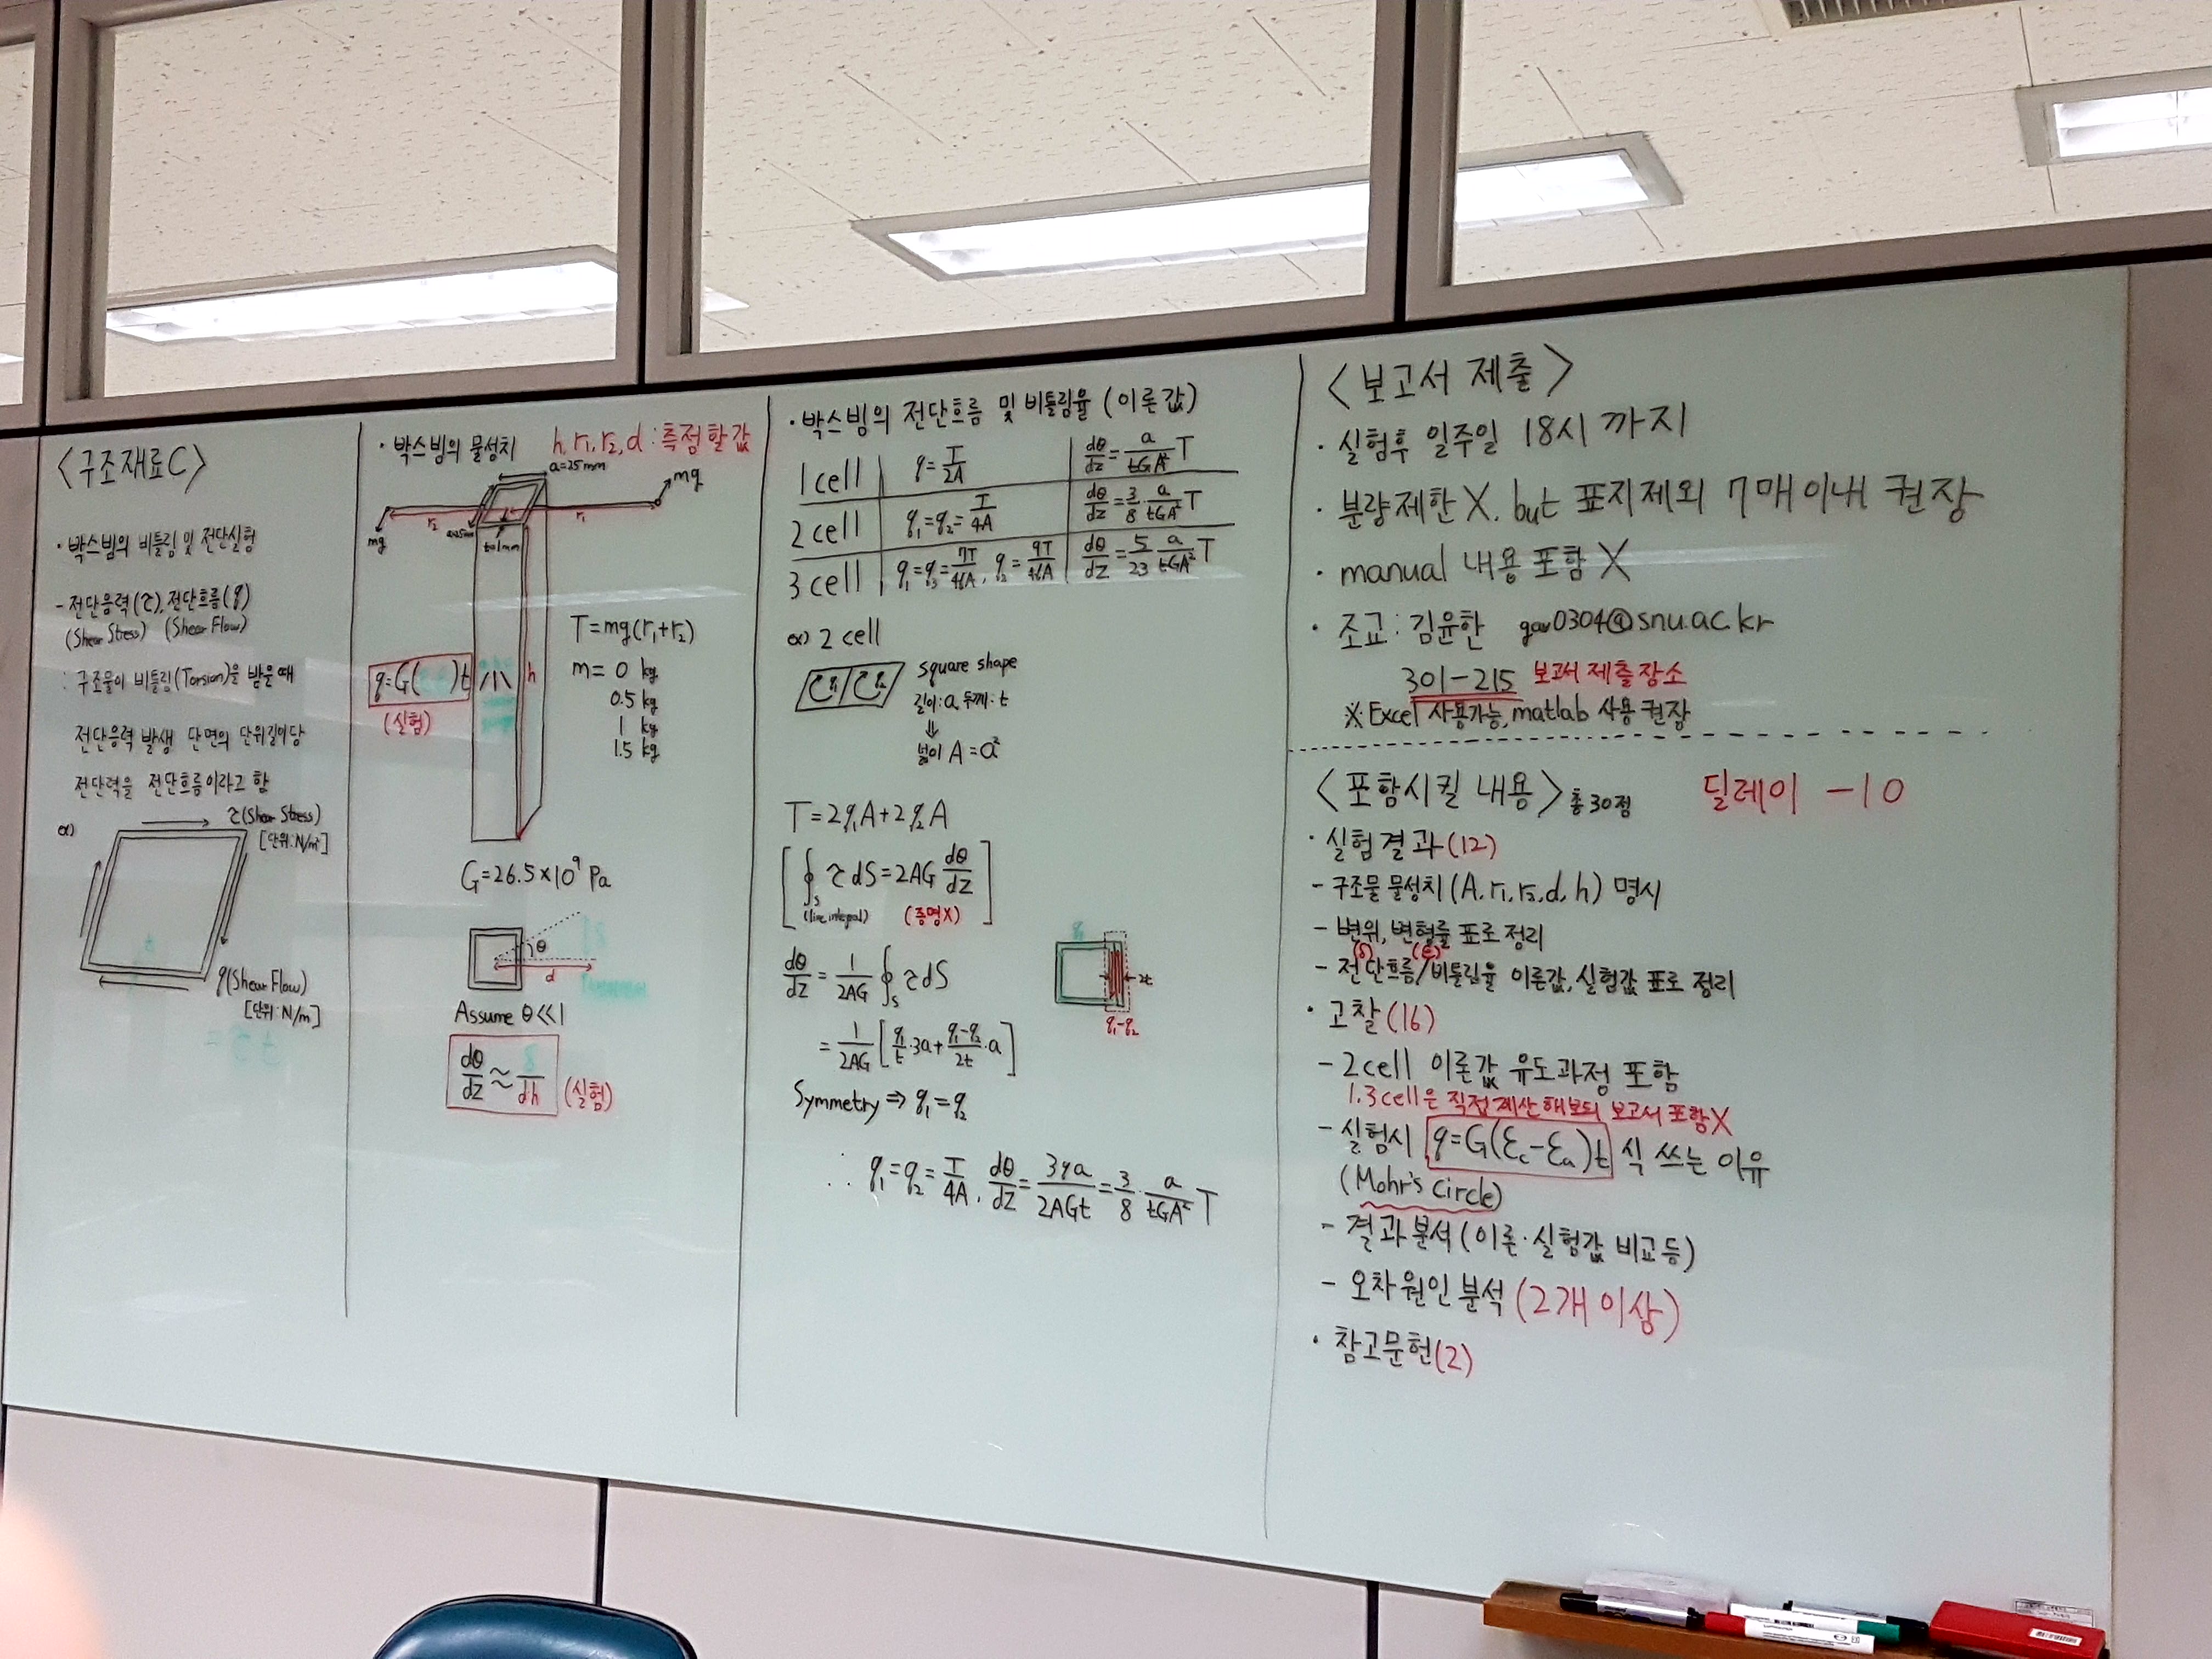 <구조재료C>
· 박스빔의 비틀림 및 전단실험
- 전단응력(τ), 전단흐름(q)
(Shear Stress) (Shear Flow)
: 구조물이 비틀림(Torsion)을 받을때
전단응력 발생 단면의 단위길이당
전단력을 전단흐름이라고 함
ex)
τ(Shear Stress)
[단위:N/m²]
q(Shear Flow)
[단위:N/m]
· 박스빔의 물성치 h, r₁, r₂, d : 측정할값
a=25mm
mg
r₂ r₁
mg
a=25mm
t=1mm
T=mg(r₁+r₂)
q=G( )t
h
m= 0 kg
(실험)
0.5 kg
1 kg
1.5 kg
G=26.5×10⁹ Pa
θ
d
Assume θ<<1
dθ/dz ≈ δ/dh (실험)
· 박스빔의 전단흐름 및 비틀림율 (이론값)
1 cell q=T/2A dθ/dz = a/tGA² T
2 cell q₁=q₂=T/4A dθ/dz = 3/8 · a/tGA² T
3 cell q₁=q₃=7T/46A, q₂=9T/46A dθ/dz = 5/23 a/tGA² T
ex) 2 cell
q₁ q₂
square shape
길이:a, 두께:t
⇓
넓이 A=a²
T=2q₁A+2q₂A
[∮s τdS=2AG dθ/dz]
(line integral) (증명X)
dθ/dz = 1/2AG ∮s τdS
= 1/2AG [q₁/t·3a + q₁-q₂/2t·a]
q₁
2t
q₁-q₂
Symmetry ⇒ q₁=q₂
∴ q₁=q₂=T/4A, dθ/dz = 3qa/2AGt = 3/8 · a/tGA² T
<보고서 제출>
· 실험후 일주일 18시 까지
· 분량제한 X, but 표지제외 7매이내 권장
· manual 내용 포함 X
· 조교 : 김윤한 gav0304@snu.ac.kr
301-215 보고서 제출장소
※ Excel 사용가능, matlab 사용 권장
<포함시킬 내용> 총30점 딜레이 -10
· 실험결과(12)
- 구조물 물성치(A, r₁, r₂, d, h) 명시
- 변위, 변형률 표로 정리
(δ) (ε)
- 전단흐름/비틀림율 이론값, 실험값 표로 정리
· 고찰(16)
- 2cell 이론값 유도과정 포함
1.3cell은 직접 계산해보되 보고서 포함X
- 실험시 q=G(εc-εa)t 식 쓰는 이유
(Mohr's circle)
- 결과분석(이론·실험값 비교등)
- 오차원인 분석(2개 이상)
· 참고문헌(2)